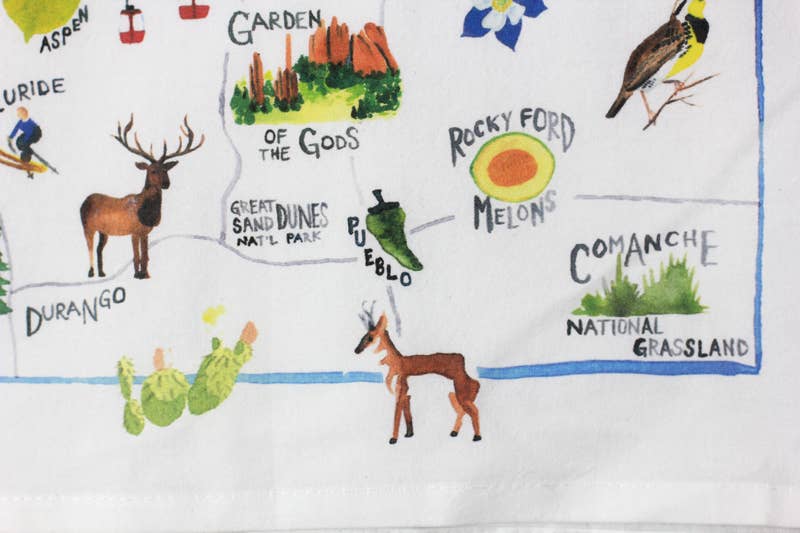 ASPEN
GARDEN
OF THE GODS
LURIDE
ROCKY FORD
MELONS
GREAT
SAND DUNES
NAT'L PARK
PUEBLO
COMANCHE
NATIONAL
GRASSLAND
DURANGO